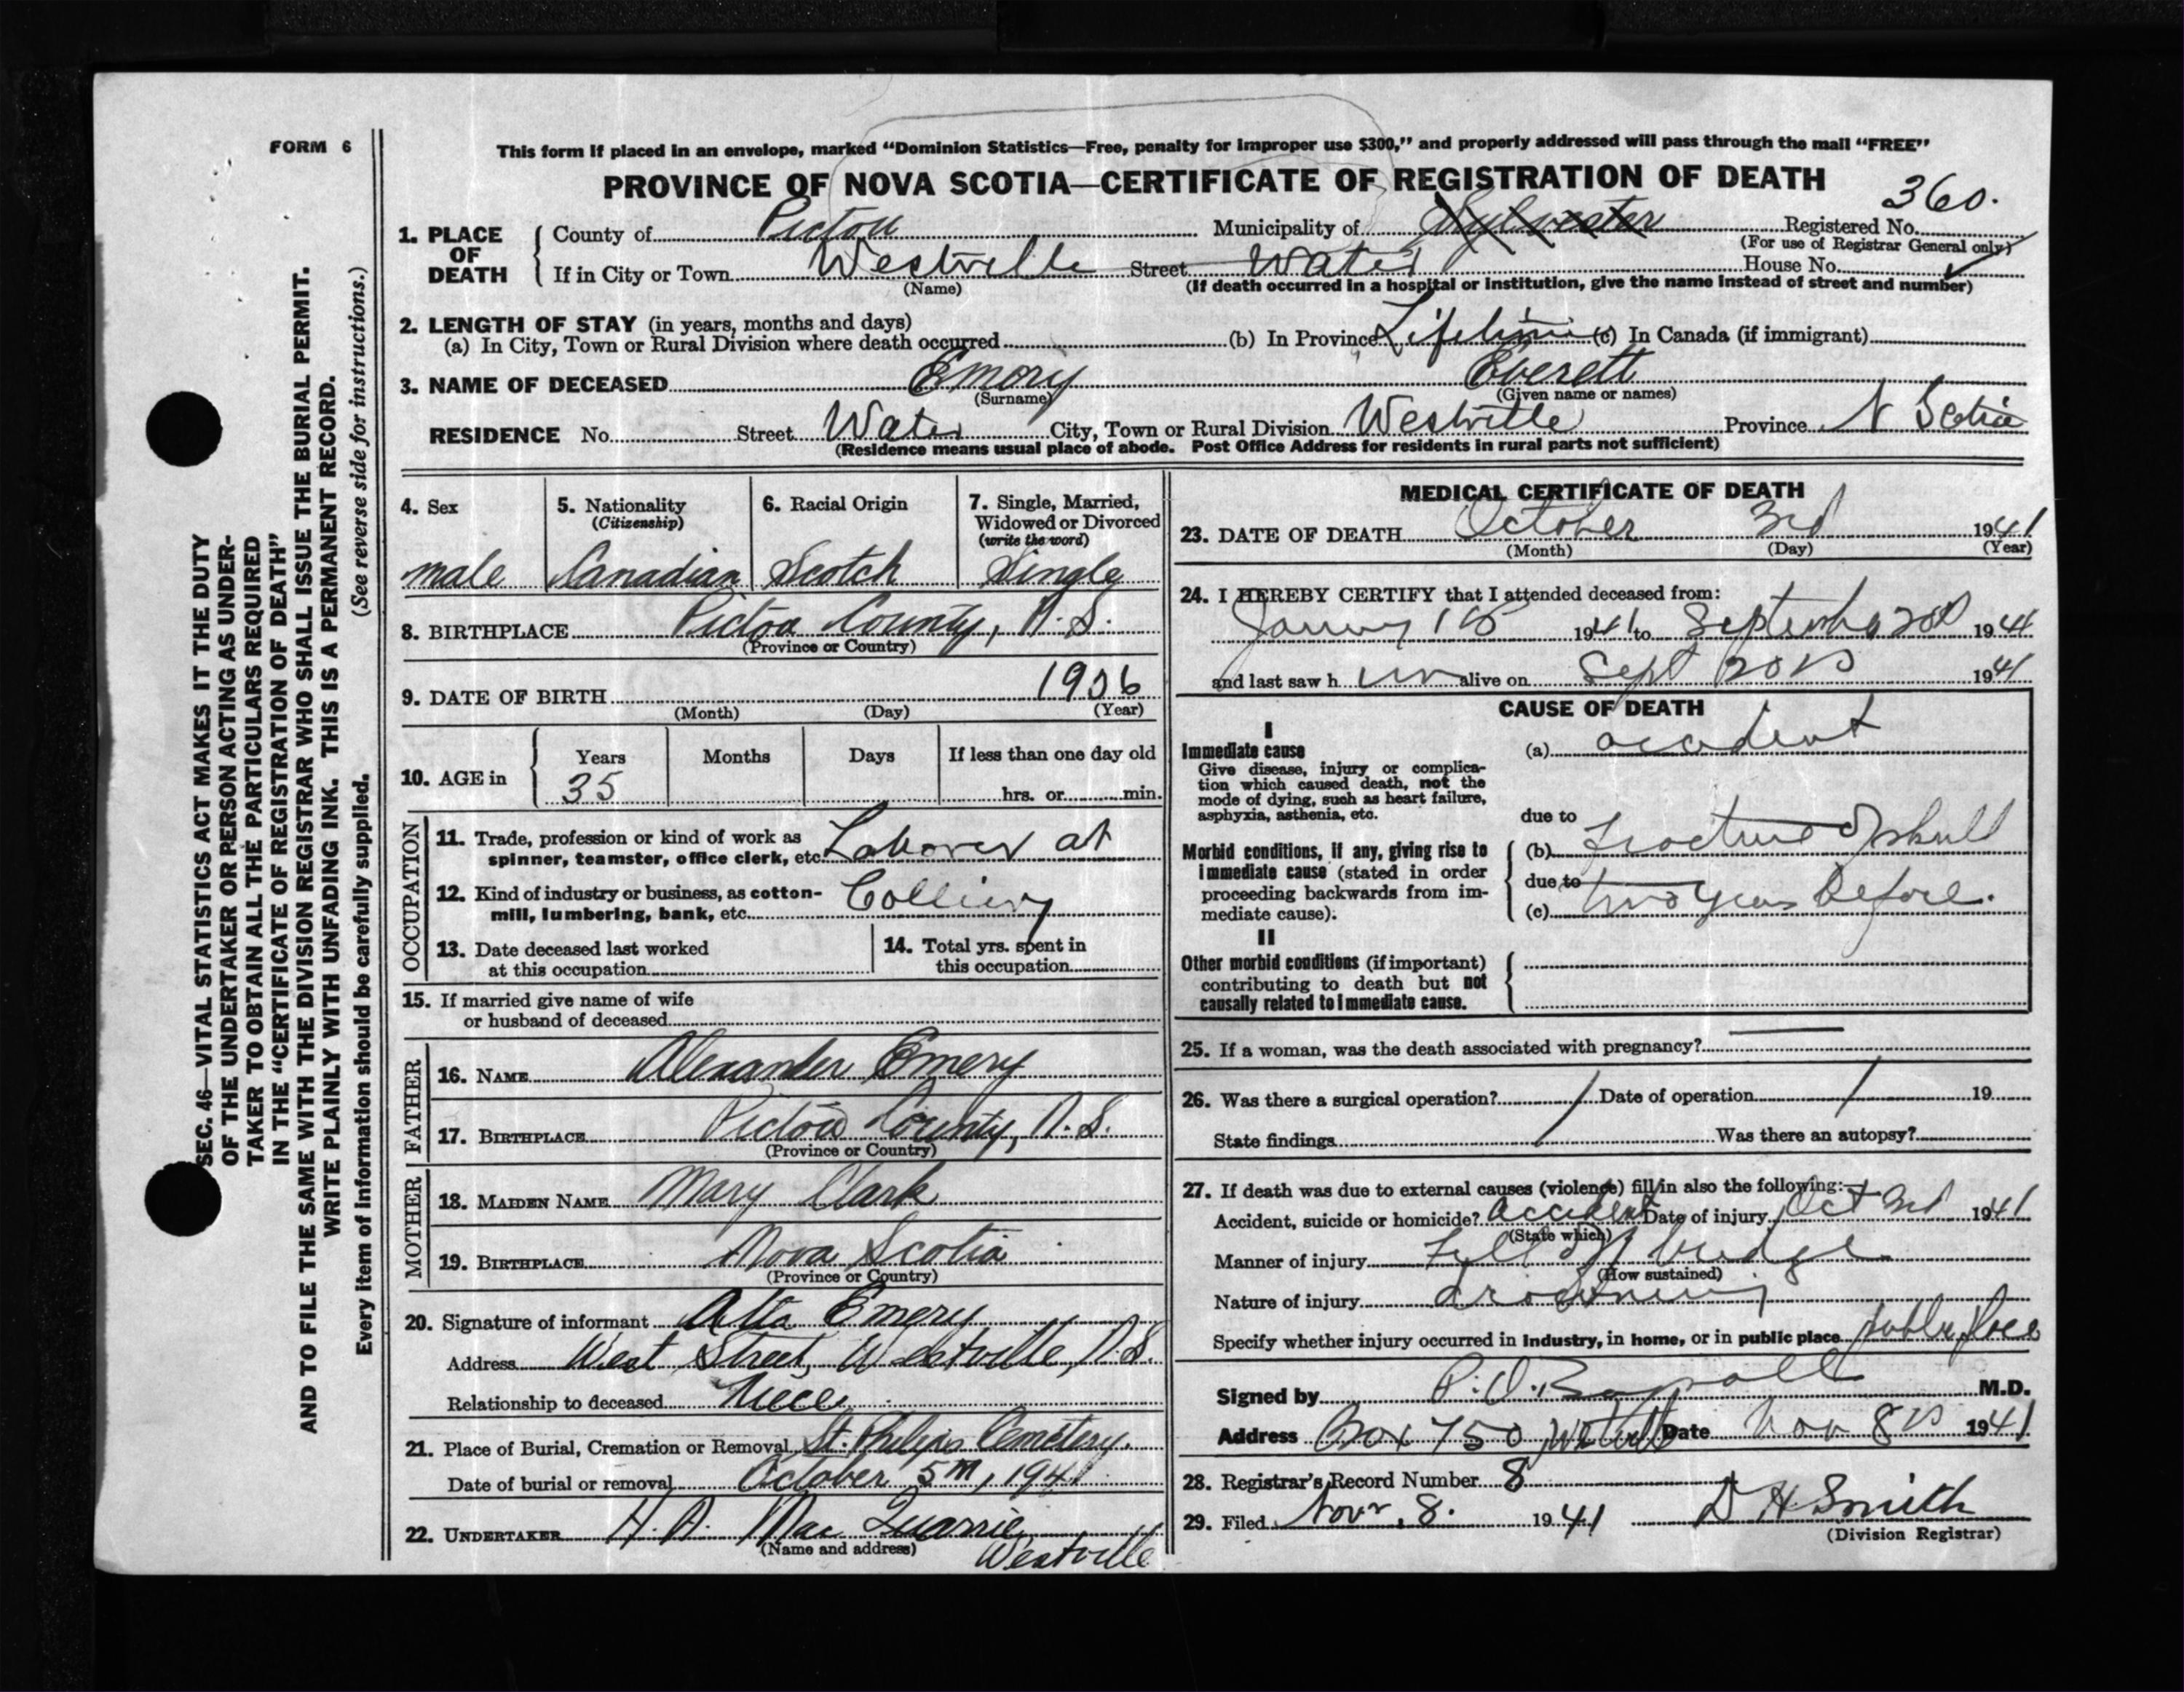 FORM 6
This form if placed in an envelope, marked “Dominion Statistics—Free, penalty for improper use $300,” and properly addressed will pass through the mail “FREE”
PROVINCE OF NOVA SCOTIA—CERTIFICATE OF REGISTRATION OF DEATH
360.
1. PLACE OF DEATH County of Pictou Municipality of Sylvester Registered No.
(For use of Registrar General only)
If in City or Town Westville Street Water House No.
(Name) (If death occurred in a hospital or institution, give the name instead of street and number)
2. LENGTH OF STAY (in years, months and days)
(a) In City, Town or Rural Division where death occurred (b) In Province Lifetime (c) In Canada (if immigrant)
3. NAME OF DECEASED Emory Everett
(Surname) (Given name or names)
RESIDENCE No. Street Water City, Town or Rural Division Westville Province N Scotia
(Residence means usual place of abode. Post Office Address for residents in rural parts not sufficient)
4. Sex 5. Nationality (Citizenship) 6. Racial Origin 7. Single, Married, Widowed or Divorced (write the word)
male Canadian Scotch Single
8. BIRTHPLACE Pictou County, N.S.
(Province or Country)
9. DATE OF BIRTH 1906
(Month) (Day) (Year)
10. AGE in Years Months Days If less than one day old
35 hrs. or min.
OCCUPATION
11. Trade, profession or kind of work as
spinner, teamster, office clerk, etc. Laborer at
12. Kind of industry or business, as cotton-
mill, lumbering, bank, etc. Colliery
13. Date deceased last worked
at this occupation
14. Total yrs. spent in
this occupation
15. If married give name of wife
or husband of deceased
FATHER
16. NAME Alexander Emery
17. BIRTHPLACE Pictou County, N.S.
(Province or Country)
MOTHER
18. MAIDEN NAME Mary Clark
19. BIRTHPLACE Nova Scotia
(Province or Country)
20. Signature of informant Alta Emery
Address West Street, Westville, N.S.
Relationship to deceased Niece
21. Place of Burial, Cremation or Removal St. Philips Cemetery.
Date of burial or removal October 5th, 1941
22. UNDERTAKER H. A. Mac Quarrie,
(Name and address) Westville
MEDICAL CERTIFICATE OF DEATH
23. DATE OF DEATH October 3rd 1941
(Month) (Day) (Year)
24. I HEREBY CERTIFY that I attended deceased from:
1941 to 1941
and last saw h im alive on Sept 20 1941
CAUSE OF DEATH
I
Immediate cause (a) accident
Give disease, injury or complica-
tion which caused death, not the
mode of dying, such as heart failure,
asphyxia, asthenia, etc.
due to
Morbid conditions, if any, giving rise to
immediate cause (stated in order
proceeding backwards from im-
mediate cause).
(b) Fracture of skull
due to
(c) two years before.
II
Other morbid conditions (if important)
contributing to death but not
causally related to immediate cause.
25. If a woman, was the death associated with pregnancy? —
26. Was there a surgical operation? / Date of operation / 19
State findings / Was there an autopsy?
27. If death was due to external causes (violence) fill in also the following:
Accident, suicide or homicide? Accident Date of injury Oct 3rd 1941
(State which)
Manner of injury Fell off bridge
(How sustained)
Nature of injury drowning
Specify whether injury occurred in industry, in home, or in public place public place
Signed by M.D.
Address Box 750 Westville Date Nov 8 1941
28. Registrar's Record Number 8
29. Filed Novr. 8. 1941 D H Smith
(Division Registrar)
SEC. 46—VITAL STATISTICS ACT MAKES IT THE DUTY
OF THE UNDERTAKER OR PERSON ACTING AS UNDER-
TAKER TO OBTAIN ALL THE PARTICULARS REQUIRED
IN THE “CERTIFICATE OF REGISTRATION OF DEATH”
AND TO FILE THE SAME WITH THE DIVISION REGISTRAR WHO SHALL ISSUE THE BURIAL PERMIT.
WRITE PLAINLY WITH UNFADING INK. THIS IS A PERMANENT RECORD.
Every item of information should be carefully supplied. (See reverse side for instructions.)